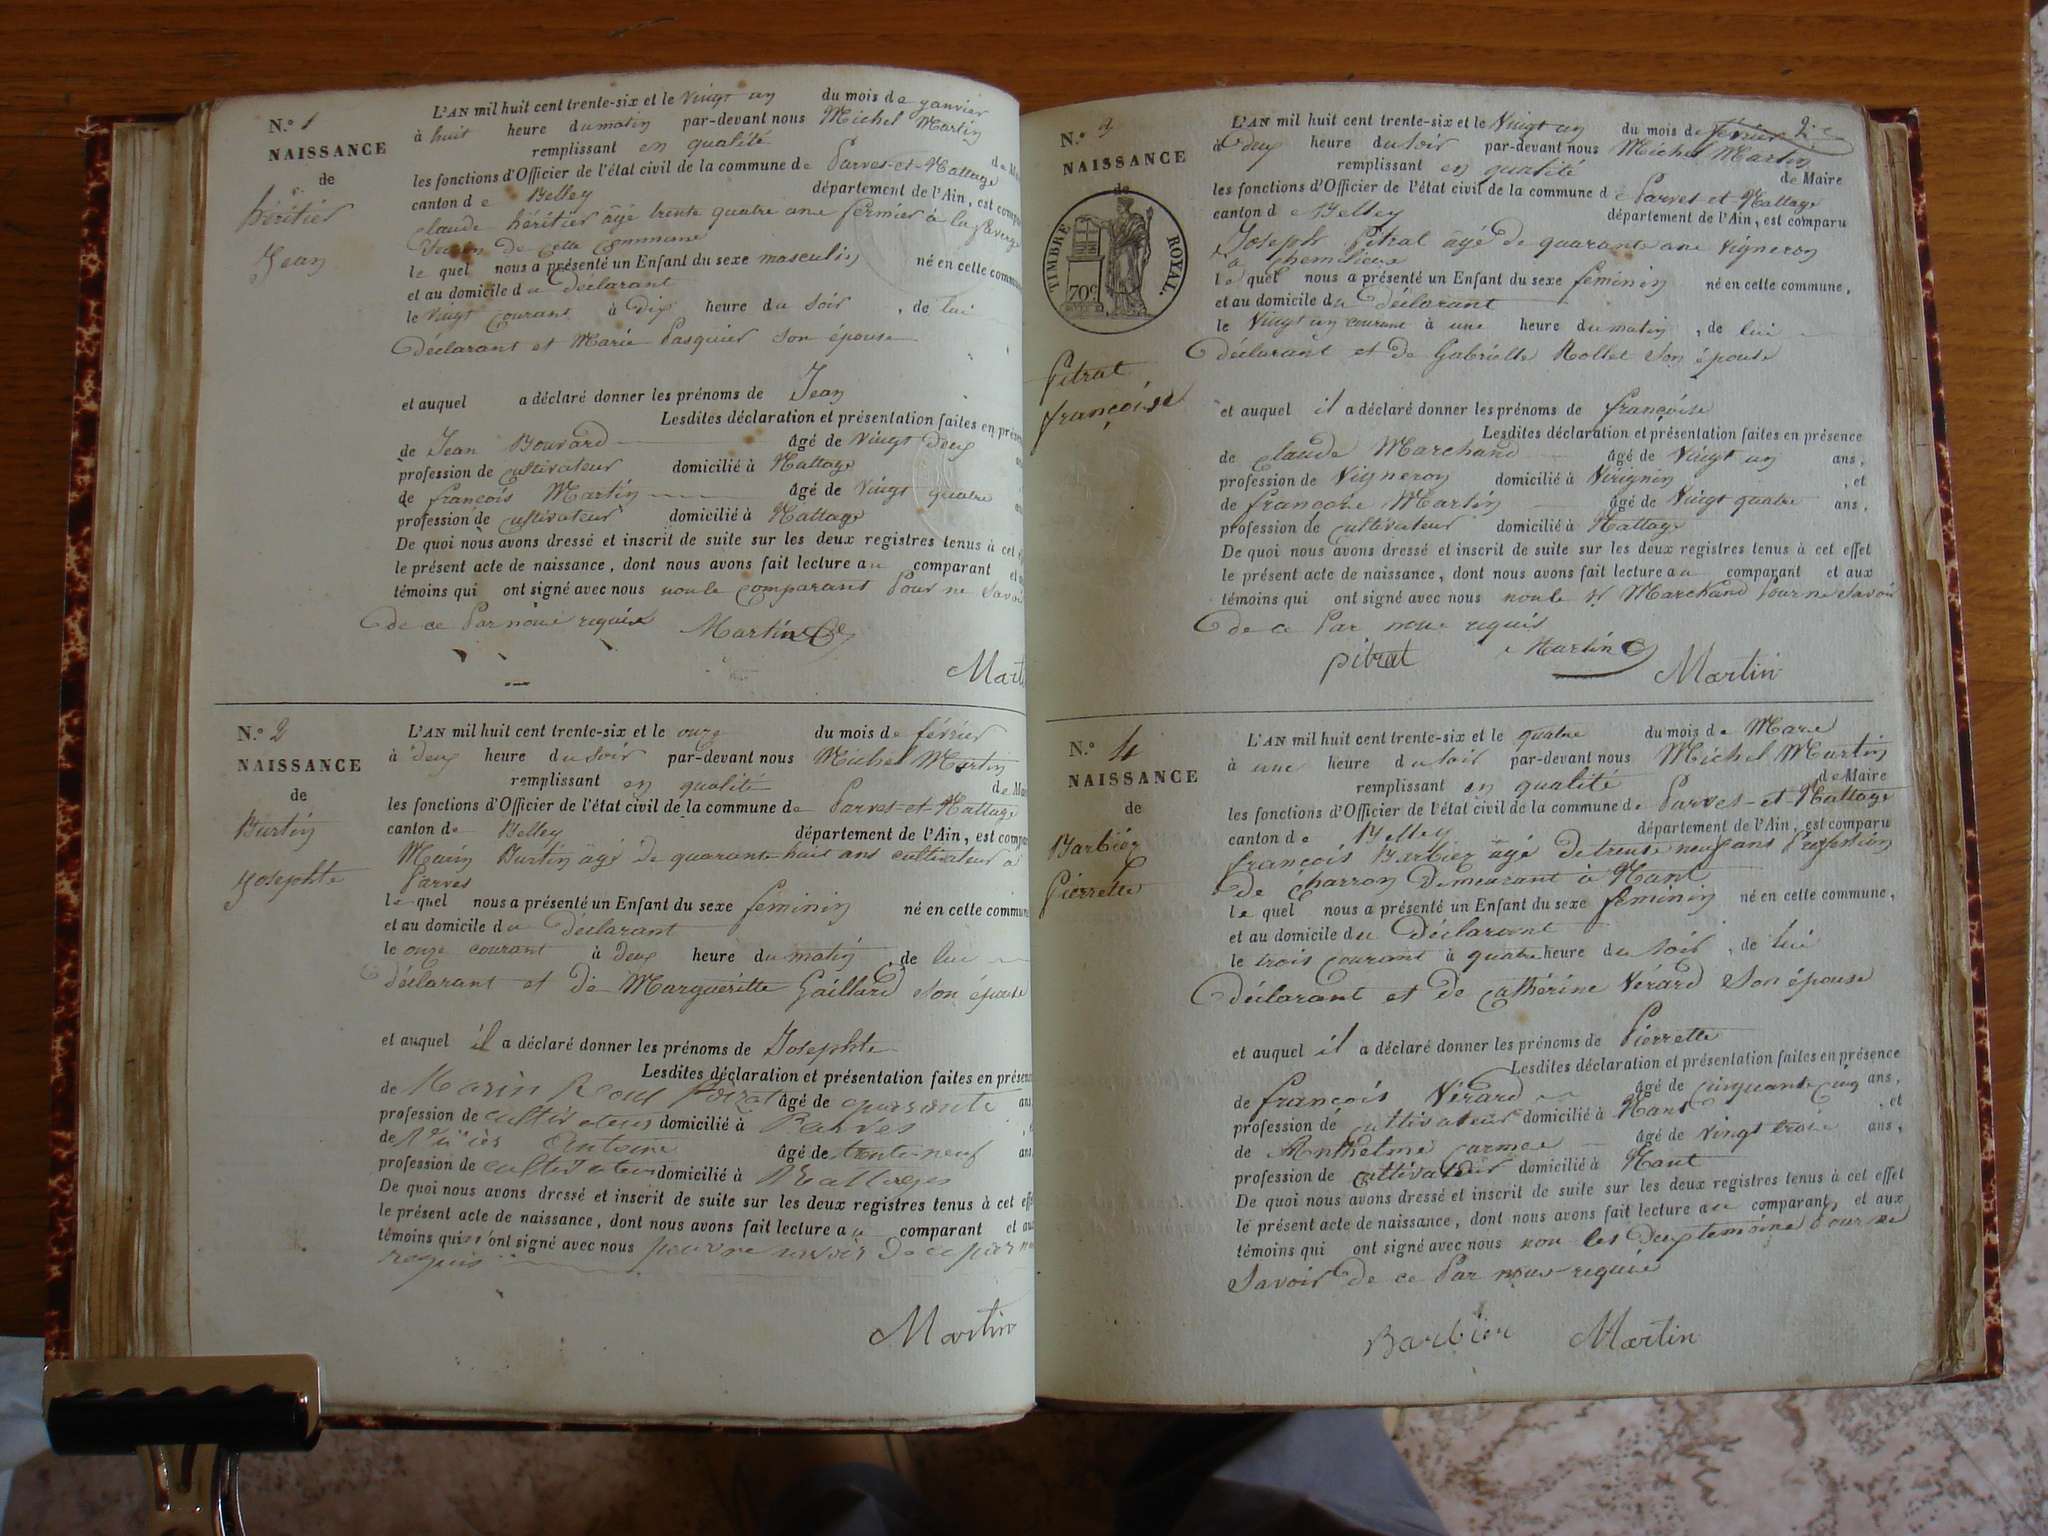 N.° 1
NAISSANCE
de
héritier
Jean
L'AN mil huit cent trente-six et le vingt un du mois de janvier
à huit heure du matin par-devant nous Michel Martin
remplissant en qualité de Mai
les fonctions d'Officier de l'état civil de la commune de Parves-et-Nattage
canton de Belley département de l'Ain, est compa
claude héritier âgé trente quatre ans fermier à la
de cette commune
le quel nous a présenté un Enfant du sexe masculin né en cette commun
et au domicile du déclarant
le vingt courant à dix heure du soir, de lui
déclarant et Marie Pasquier son épouse
et auquel a déclaré donner les prénoms de Jean
Lesdites déclaration et présentation faites en présen
de Jean Bouvard âgé de vingt deux
profession de cultivateur domicilié à Nattage
de françois Martin âgé de vingt quatre
profession de cultivateur domicilié à Nattage
De quoi nous avons dressé et inscrit de suite sur les deux registres tenus à cet
le présent acte de naissance, dont nous avons fait lecture au comparant et
témoins qui ont signé avec nous non le comparant Pour ne Savoir
de ce Par nous requis Martin
Mart
N.° 2
NAISSANCE
de
Burtin
Josephte
L'AN mil huit cent trente-six et le onze du mois de février
à deux heure du soir par-devant nous Michel Martin
remplissant en qualité de Mai
les fonctions d'Officier de l'état civil de la commune de Parves-et-Nattage
canton de Belley département de l'Ain, est compa
Marin Burtin âgé de quarante huit ans cultivateur à
Parves
le quel nous a présenté un Enfant du sexe feminin né en cette commune
et au domicile du déclarant
le onze courant à deux heure du matin, de lui
déclarant et de Marguéritte Gaillard son épouse
et auquel il a déclaré donner les prénoms de Josephte
Lesdites déclaration et présentation faites en présen
de Marin âgé de quarante ans
profession de cultivateur domicilié à Parves
de Antoine âgé de trente-neuf ans
profession de cultivateur domicilié à Nattages
De quoi nous avons dressé et inscrit de suite sur les deux registres tenus à cet effe
le présent acte de naissance, dont nous avons fait lecture au comparant et aux
témoins qui n'ont signé avec nous pour ne savoir de ce par nou
requis
Martin
N.° 3
NAISSANCE
de
TIMBRE ROYAL.
70c
Pitrat
françoise
L'AN mil huit cent trente-six et le Vingt un du mois de février
à deux heure du soir par-devant nous Michel Martin
remplissant en qualité de Maire
les fonctions d'Officier de l'état civil de la commune de Parves-et-Nattage
canton de Belley département de l'Ain, est comparu
Joseph Pitrat âgé de quarante ans Vigneron
à chemilieux
le quel nous a présenté un Enfant du sexe feminin né en cette commune,
et au domicile du déclarant
le Vingt un courant à une heure du matin, de lui
déclarant et de Gabrielle Rollet son épouse
et auquel il a déclaré donner les prénoms de françoise
Lesdites déclaration et présentation faites en présence
de claude Marchand âgé de Vingt un ans,
profession de Vigneron domicilié à Virignin, et
de françois Martin âgé de Vingt quatre ans,
profession de cultivateur domicilié à Nattage
De quoi nous avons dressé et inscrit de suite sur les deux registres tenus à cet effet
le présent acte de naissance, dont nous avons fait lecture au comparant et aux
témoins qui ont signé avec nous non le Marchand Pour ne Savoir
de ce Par nous requis
pitrat Martin Martin
N.° 4
NAISSANCE
de
Barbier
Pierrette
L'AN mil huit cent trente-six et le quatre du mois de Mars
à une heure du soir par-devant nous Michel Martin
remplissant en qualité de Maire
les fonctions d'Officier de l'état civil de la commune de Parves-et-Nattage
canton de Belley département de l'Ain, est comparu
françois Barbier âgé de trente neuf ans Profession
de charron demeurant à Nant
le quel nous a présenté un Enfant du sexe feminin né en cette commune,
et au domicile du Déclarant
le trois courant à quatre heure du soir, de lui
déclarant et de Cathérine Vérard son épouse
et auquel il a déclaré donner les prénoms de Pierrette
Lesdites déclaration et présentation faites en présence
de françois Vérard âgé de cinquante cinq ans,
profession de cultivateur domicilié à Nant, et
de Anthelme carmer âgé de vingt trois ans,
profession de cultivateur domicilié à Nant
De quoi nous avons dressé et inscrit de suite sur les deux registres tenus à cet effet
le présent acte de naissance, dont nous avons fait lecture au comparant, et aux
témoins qui ont signé avec nous non les deux temoins Pour ne
Savoir de ce Par nous requis
Barbier Martin